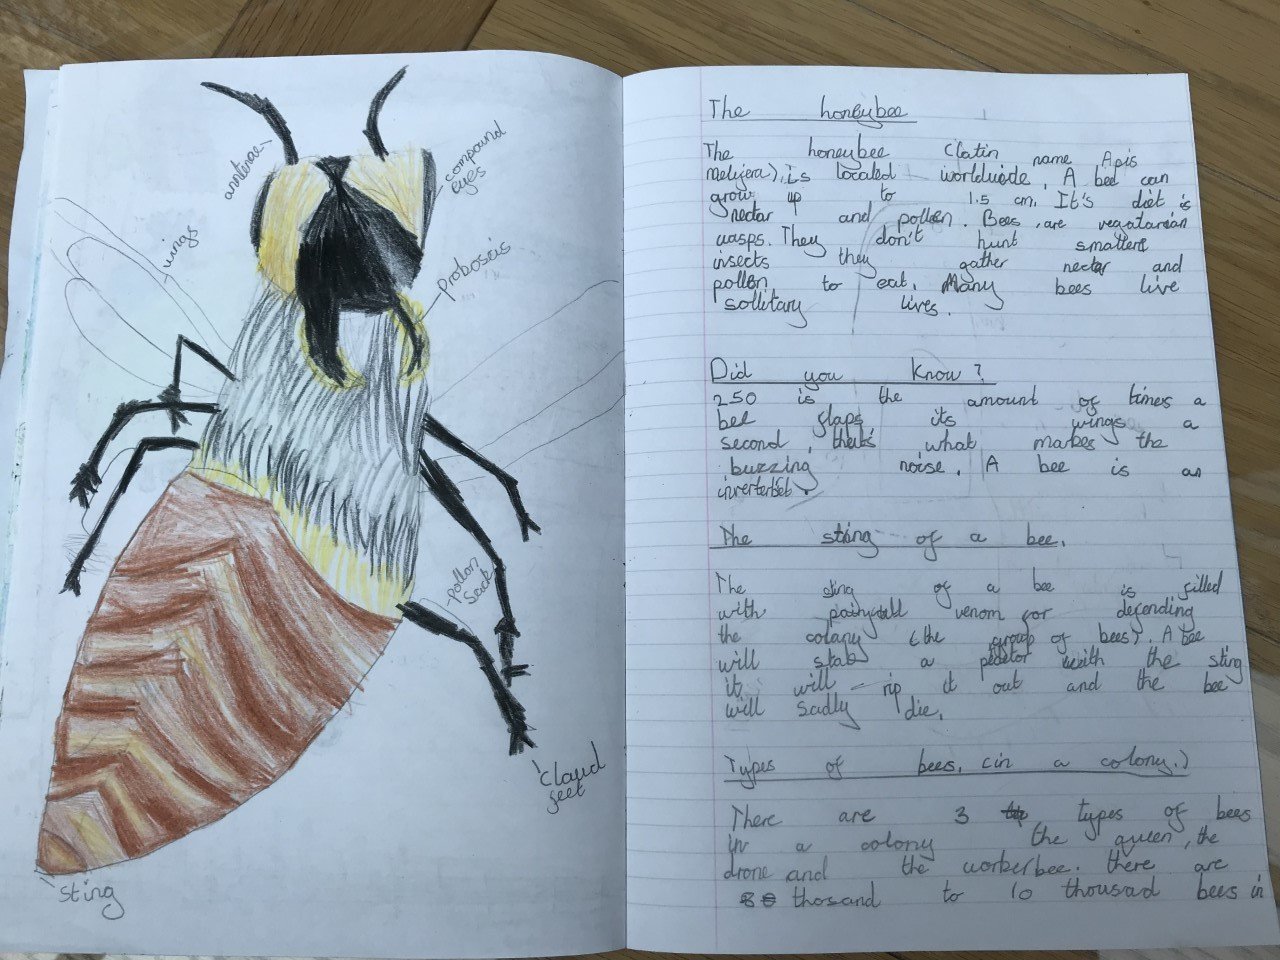 anntenae
compound
eyes
wings
Proboscis
pollon
Sack
clawd
feet
sting
The honeybee
The honeybee (latin name Apis
Meligera), is located worldwide. A bee can
grow up to 1.5 cm. It's diet is
nectar and pollen. Bees are vegatarian
wasps. They don't hunt smatlers
insects they gather nectar and
pollen to eat. Many bees live
sollitary lives.
Did you know?
250 is the amount of times a
bee flaps its wings a
second, thats what makes the
buzzing noise. A bee is an
inverterbet.
The sting of a bee.
The sting of a bee is filled
with venom for defending
the colany (the group of bees). A bee
will stab a with the sting
it will rip it out and the bee
will sadly die.
Types of bees. (in a colony.)
There are 3 types of bees
in a colony the queen, the
drone and the workerbee. there are
thosand to 10 thousad bees in